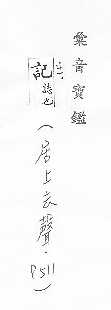 彙音寶鑑
記誌也
(居上去聲·P511)